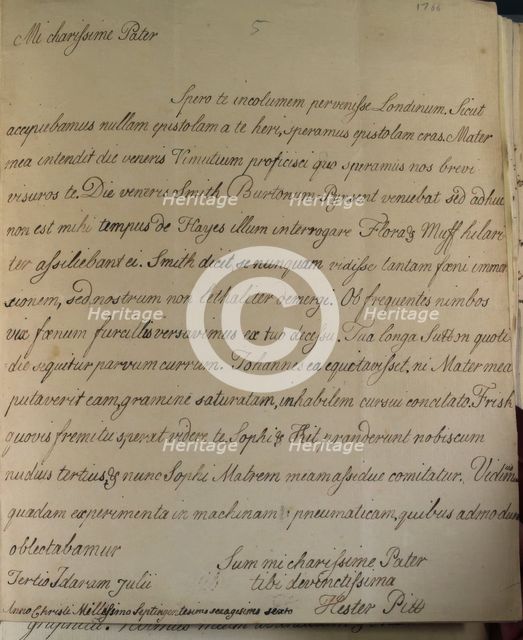 1766
5
Mi charissime Pater
Spero te incolumem pervenisse Londinum. Sicut
accipiebamus nullam epistolam a te heri, speramus epistolam cras. Mater
mea intendit die veneris Vimutium proficisci quo speramus nos brevi
visuros te. Die veneris Smith Burtonum Pynsent veniebat sed adhuc
non est mihi tempus de Hayes illum interrogare Flora & Muff hilari
ter assiliebant ei. Smith dicit, se nunquam vidisse tantam fœni immer
sionem, sed nostrum non lethaliter demergi. Ob frequentes nimbos
vix fœnum furcillis versavimus ex tuo decessu. Tua longa Sutton quoti
die sequitur parvum currum. Johannes ea equitavisset, ni Mater mea
putaverit eam, gramine saturatam, inhabilem cursui concitato. Frisk
quovis fremitu sperat videre te Sophi & Kit, pranderunt nobiscum
nudius tertius, & nunc Sophi Matrem meam assidue comitatur. Vidimus
quædam experimenta in machinam pneumaticam, quibus admodum
oblectabamur
Sum mi charissime Pater
tibi devinctissima
Hester Pitt
Tertio Idarum Julii
Anno Christi Millessimo Septingentesimo sexagesimo sexto
Heritage
Heritage
Heritage
Heritage
Heritage
Heritage
Heritage
Heritage
Heritage
©